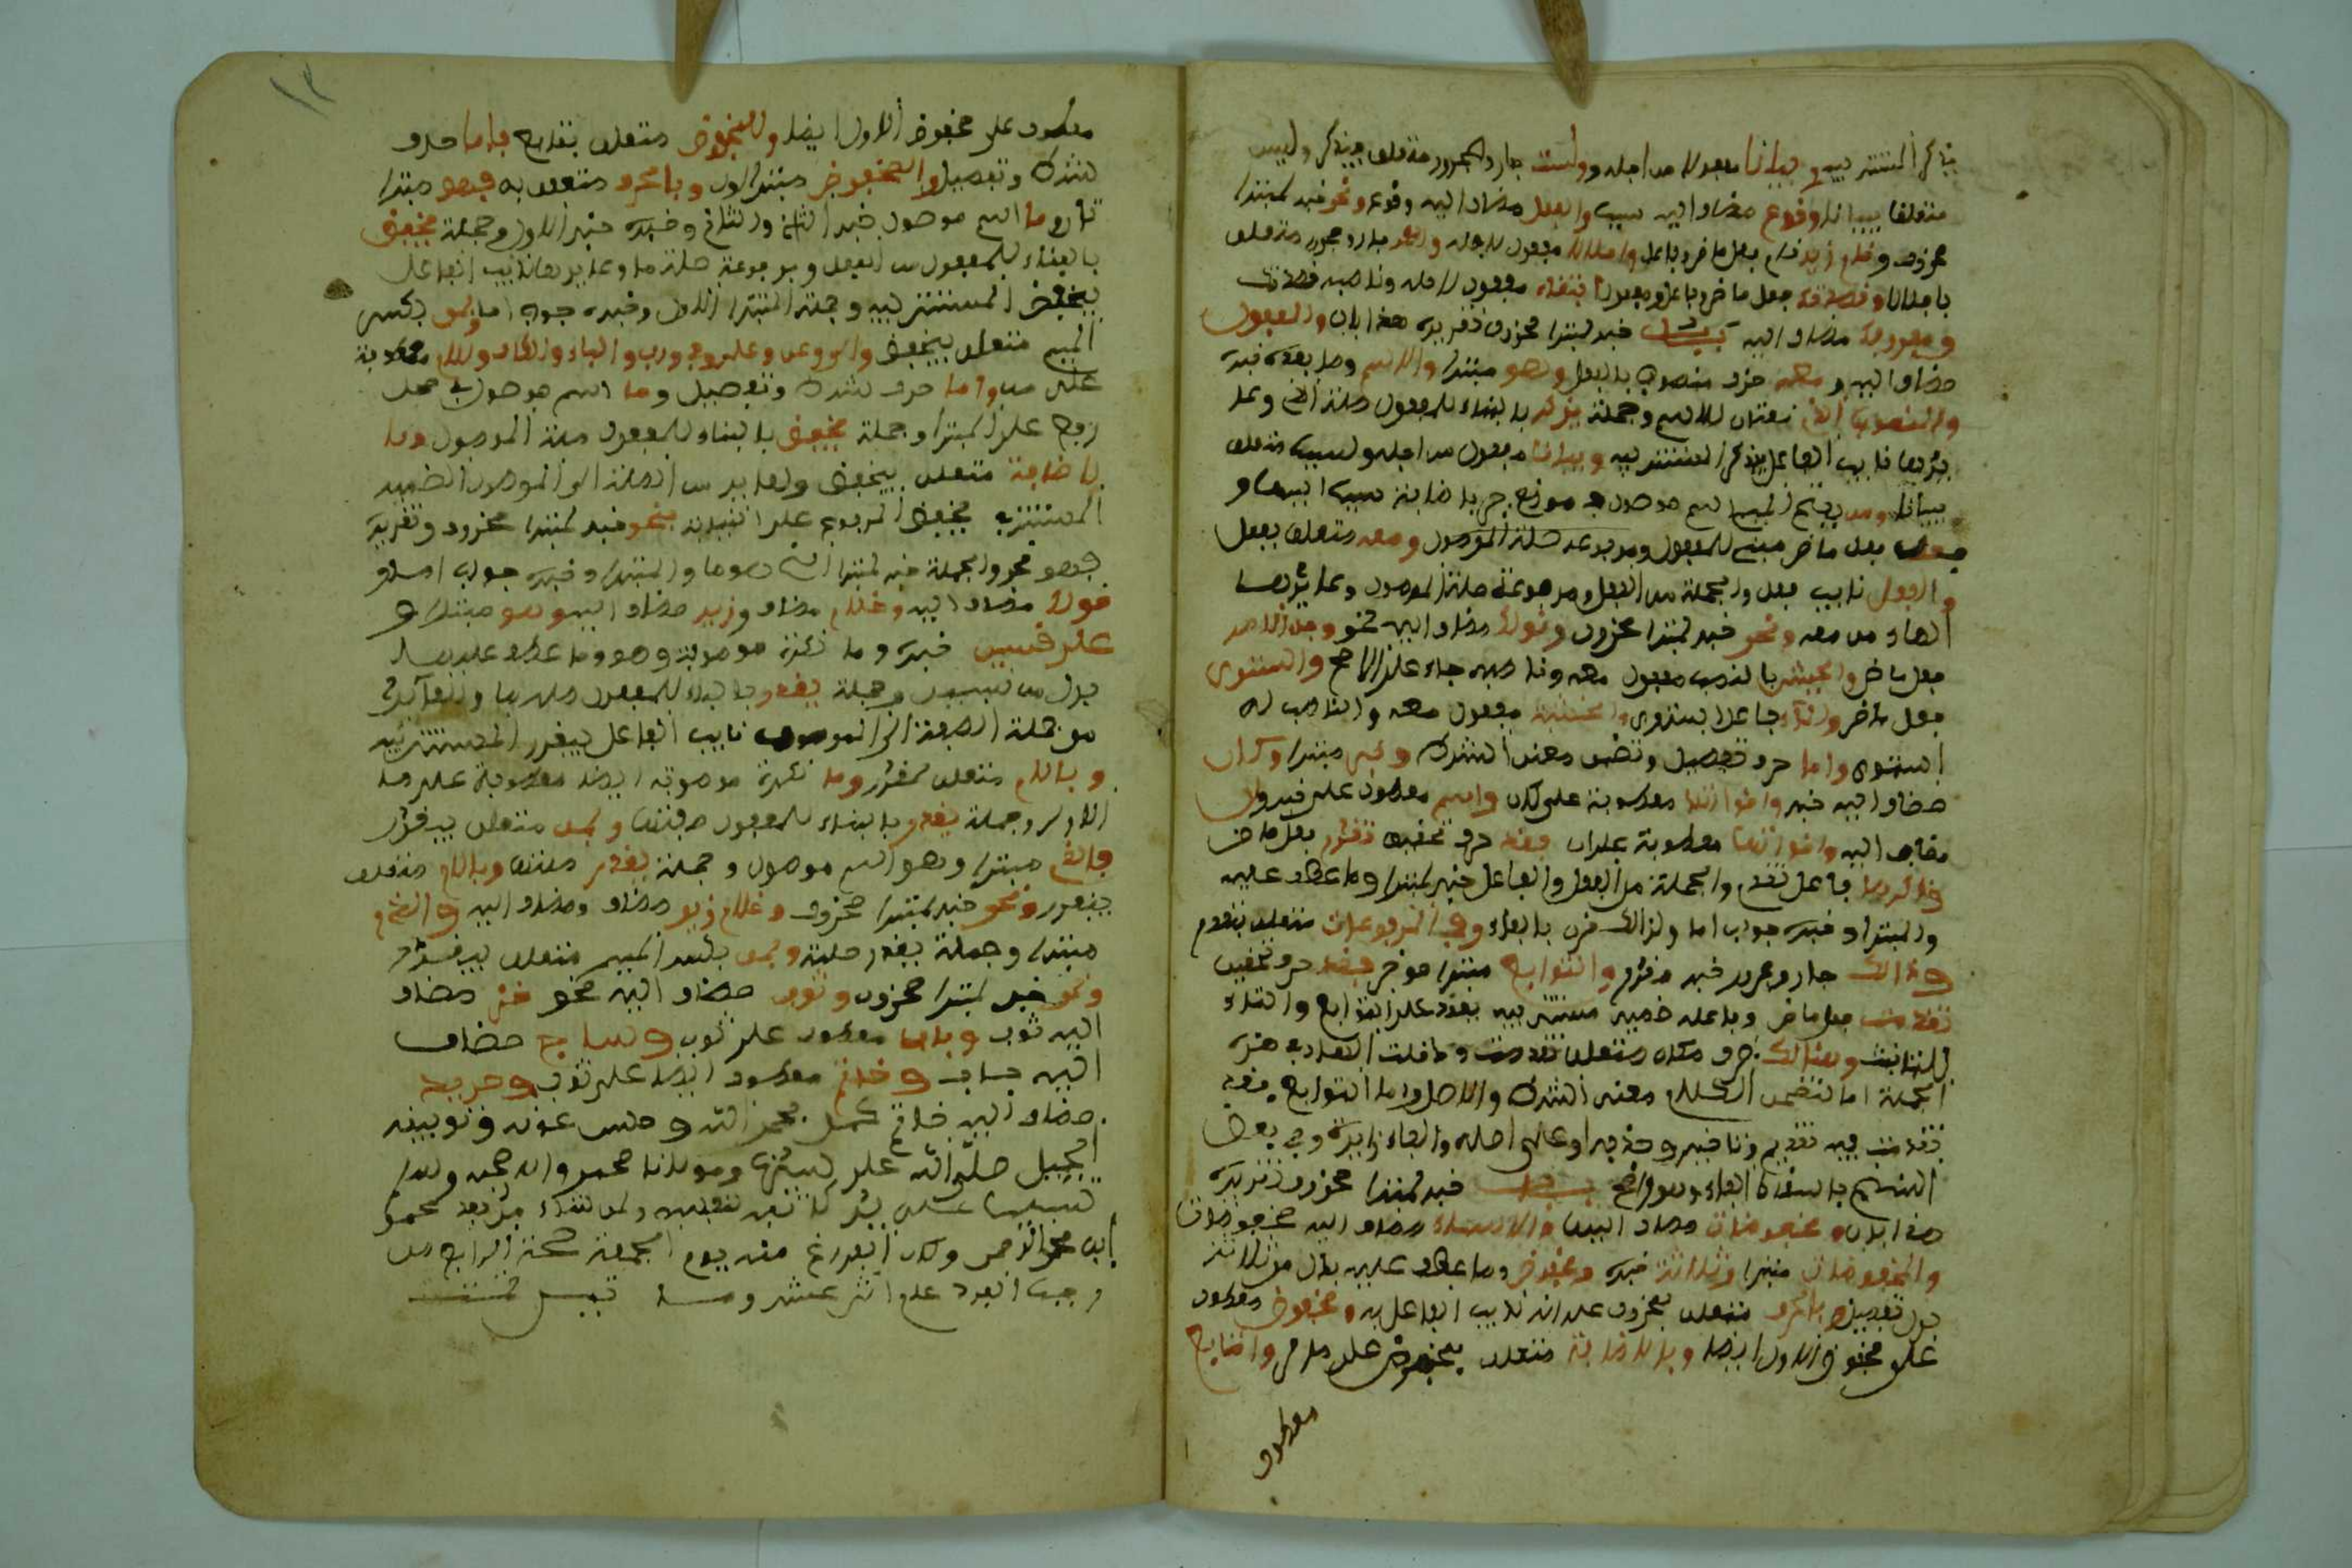 يذكر المستتر فيه وبيانا مفعول من اجله ولسبب جار ومجرور متعلق بيذكر وليس
متعلقا ببيانا وقوع مضاف اليه سبب والفعل مضاف اليه وقوع ونحو خبر لمبتدا
محذوف وقام زيد قام فعل ماض وفاعل واجلالا مفعول لاجله ولعمرو جار ومجرور متعلق
باجلالا وقصدتك فعل ماض وفاعل ومفعول ابتغاء مفعول لاجله وناصبه قصدتك
ومعروفك مضاف اليه باب خبر لمبتدا محذوف تقديره هذا باب والمفعول
مضاف اليه ومعه ظرف منصوب بالمفعول وهو مبتدا والاسم وما بعده خبره
والمنصوب الذي نعتان للاسم وجملة يذكر بالبناء للمفعول صلة الذي وعا
يدها نايب الفاعل بيذكر المستتر فيه وبيانا مفعول من اجله ولسبب متعلق
ببيانا ومن بفتح الميم اسم موصول في موضع جر باضافة سبب اليها و
فعل فعل ماض مبني للمفعول ومرفوعه صلة الموصول ومعه متعلق بفعل
والفعل نايب فعل والجملة من الفعل ومرفوعه صلة الموصول وعايدها
الهاء من معه ونحو خبر لمبتدا محذوف وقولك مضاف اليه نحو وجاء الامير
فعل ماض والجيش بالنصب مفعول معه وناصبه جاء على الاصح واستوى
فعل ماض والماء فاعل استوى والخشبة مفعول معه والناصب له
استوى واما حرف تفصيل وتضمن معنى الشرط وخبر مبتدا وكان
مضاف اليه خبر واخواتها معطوفة على كان واسم معطوف على خبر وان
مضاف اليه واخواتها معطوفة على ان فقد حرف تحقيق تقدم فعل ماض
ذكرهما فاعل تقدم والجملة من الفعل والفاعل خبر لمبتدا وما عطف عليه
والمبتدا وخبره جواب اما ولذالك قرن بالفاء وفي المرفوعات متعلق بتقدم
وكذالك جار ومجرور خبر مقدم والتوابع مبتدا موخر فقد حرف تحقيق
تقدمت فعل ماض وفاعله ضمير مستتر فيه يعود على التوابع والتاء
للتانيث وهنالك ظرف مكان متعلق بتقدمت ودخلت الفاء في هذه
الجملة اما لتضمن الكلام معنى الشرط والاصل واما التوابع فقد
تقدمت ففيه تقديم وتاخير وحذف او على اصله والفاء زايدة وفي بعض
النسخ باسقاط الفاء وهو واضح باب خبر لمبتدا محذوف تقديره
هذا باب ومخفوضات مضاف اليها والاسماء مضاف اليه مخفوضات
والمخفوضات مبتدا وثلاثة خبره ومخفوض وما عطف عليه بدل من ثلاثة
بدل تفصيل وبالحرف متعلق بمخفوض على انه نايب الفاعل به ومخفوض معطوف
على مخفوض الاول ايضا وبالاضافة متعلق بمخفوض على ما مر وتابع
معطوف
معطوف على مخفوض الاول ايضا وللمخفوض متعلق بتابع فاما حرف
شرط وتفصيل والمخفوض مبتدا اول وبالحرف متعلق به فهو مبتدا
ثان وما اسم موصول خبر الثاني والثاني وخبره خبر الاول وجملة يخفض
بالبناء للمفعول من الفعل ومرفوعه صلة ما وعايدها نايب الفاعل
بيخفض المستتر فيه وجملة المبتدا الاول وخبره جواب اما وبمن بكسر
الميم متعلق بيخفض والى وعن وعلى وفي ورب والباء والكاف واللام معطوفة
على من واما حرف شرط وتفصيل وما اسم موصول في محل
رفع على المبتدا وجملة يخفض بالبناء للمفعول صلة الموصول وبا
لاضافة متعلق بيخفض والعايد من الصلة الى الموصول الضمير
المستتر في يخفض المرفوع على النيابة فنحو خبر لمبتدا محذوف وتقديره
فهو نحو والجملة خبر لمبتدا الذي هو ما والمبتدا وخبره جواب اما و
قولك مضاف اليه وغلام مضاف وزيد مضاف اليه وهو مبتدا و
على قسمين خبره وما نكرة موصوفة وهو وما عطف عليه
بدل من قسمين وجملة يقدر بالبناء للمفعول صلة ما والعايد
من جملة الصفة الى الموصوف نايب الفاعل بيقدر المستتر فيه
وباللام متعلق بيقدر وما نكرة موصوفة ايضا معطوفة على ما
الاولى وجملة يقدر بالبناء للمفعول صفتها وبمن متعلق بيقدر
فالذي مبتدا وهو اسم موصول وجملة يقدر صلته وباللام متعلق
بيقدر ونحو خبر لمبتدا محذوف وغلام زيد مضاف ومضاف اليه والذي
مبتدا وجملة يقدر صلته وبمن بكسر الميم متعلق بيقدر
ونحو خبر لمبتدا محذوف وثوب مضاف اليه نحو خز مضاف
اليه ثوب وباب معطوف على ثوب وساج مضاف
اليه باب وخاتم معطوف ايضا على ثوب وحديد
مضاف اليه خاتم كمل بحمد الله وحسن عونه وتوفيقه
الجميل صلى الله على سيدنا ومولانا محمد واله وصحبه وسلم
تسليما على يد كاتبه لنفسه ولمن شاء من بعد محمد
ابن محمد وكان الفراغ منه يوم الجمعة الرابع من
رجب الفرد عام اثني عشر